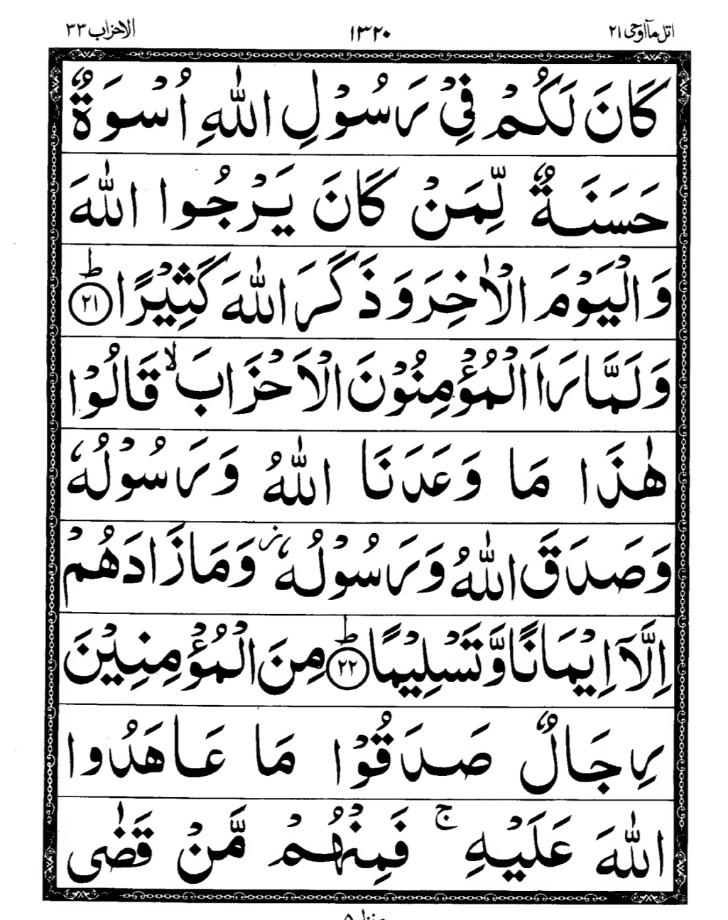 اتل مآاوحی ٢١ ١٣٢٠ الاحزاب ٣٣
كَانَ لَكُمْ فِيْ رَسُوْلِ اللّٰهِ اُسْوَةٌ
حَسَنَةٌ لِّمَنْ كَانَ يَرْجُوا اللّٰهَ
وَالْيَوْمَ الْاٰخِرَ وَذَكَرَ اللّٰهَ كَثِيْرًا ؕ ﴿٢١﴾
وَلَمَّا رَاَ الْمُؤْمِنُوْنَ الْاَحْزَابَ ۙ قَالُوْا
هٰذَا مَا وَعَدَنَا اللّٰهُ وَرَسُوْلُهٗ
وَصَدَقَ اللّٰهُ وَرَسُوْلُهٗ ؗ وَمَا زَادَهُمْ
اِلَّاۤ اِيْمَانًا وَّتَسْلِيْمًا ؕ ﴿٢٢﴾ مِنَ الْمُؤْمِنِيْنَ
رِجَالٌ صَدَقُوْا مَا عَاهَدُوا
اللّٰهَ عَلَيْهِ ۚ فَمِنْهُمْ مَّنْ قَضٰى
منزل ٥